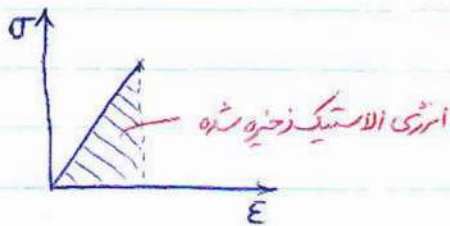 σ
انرژی الاستیک ذخیره شده
ε